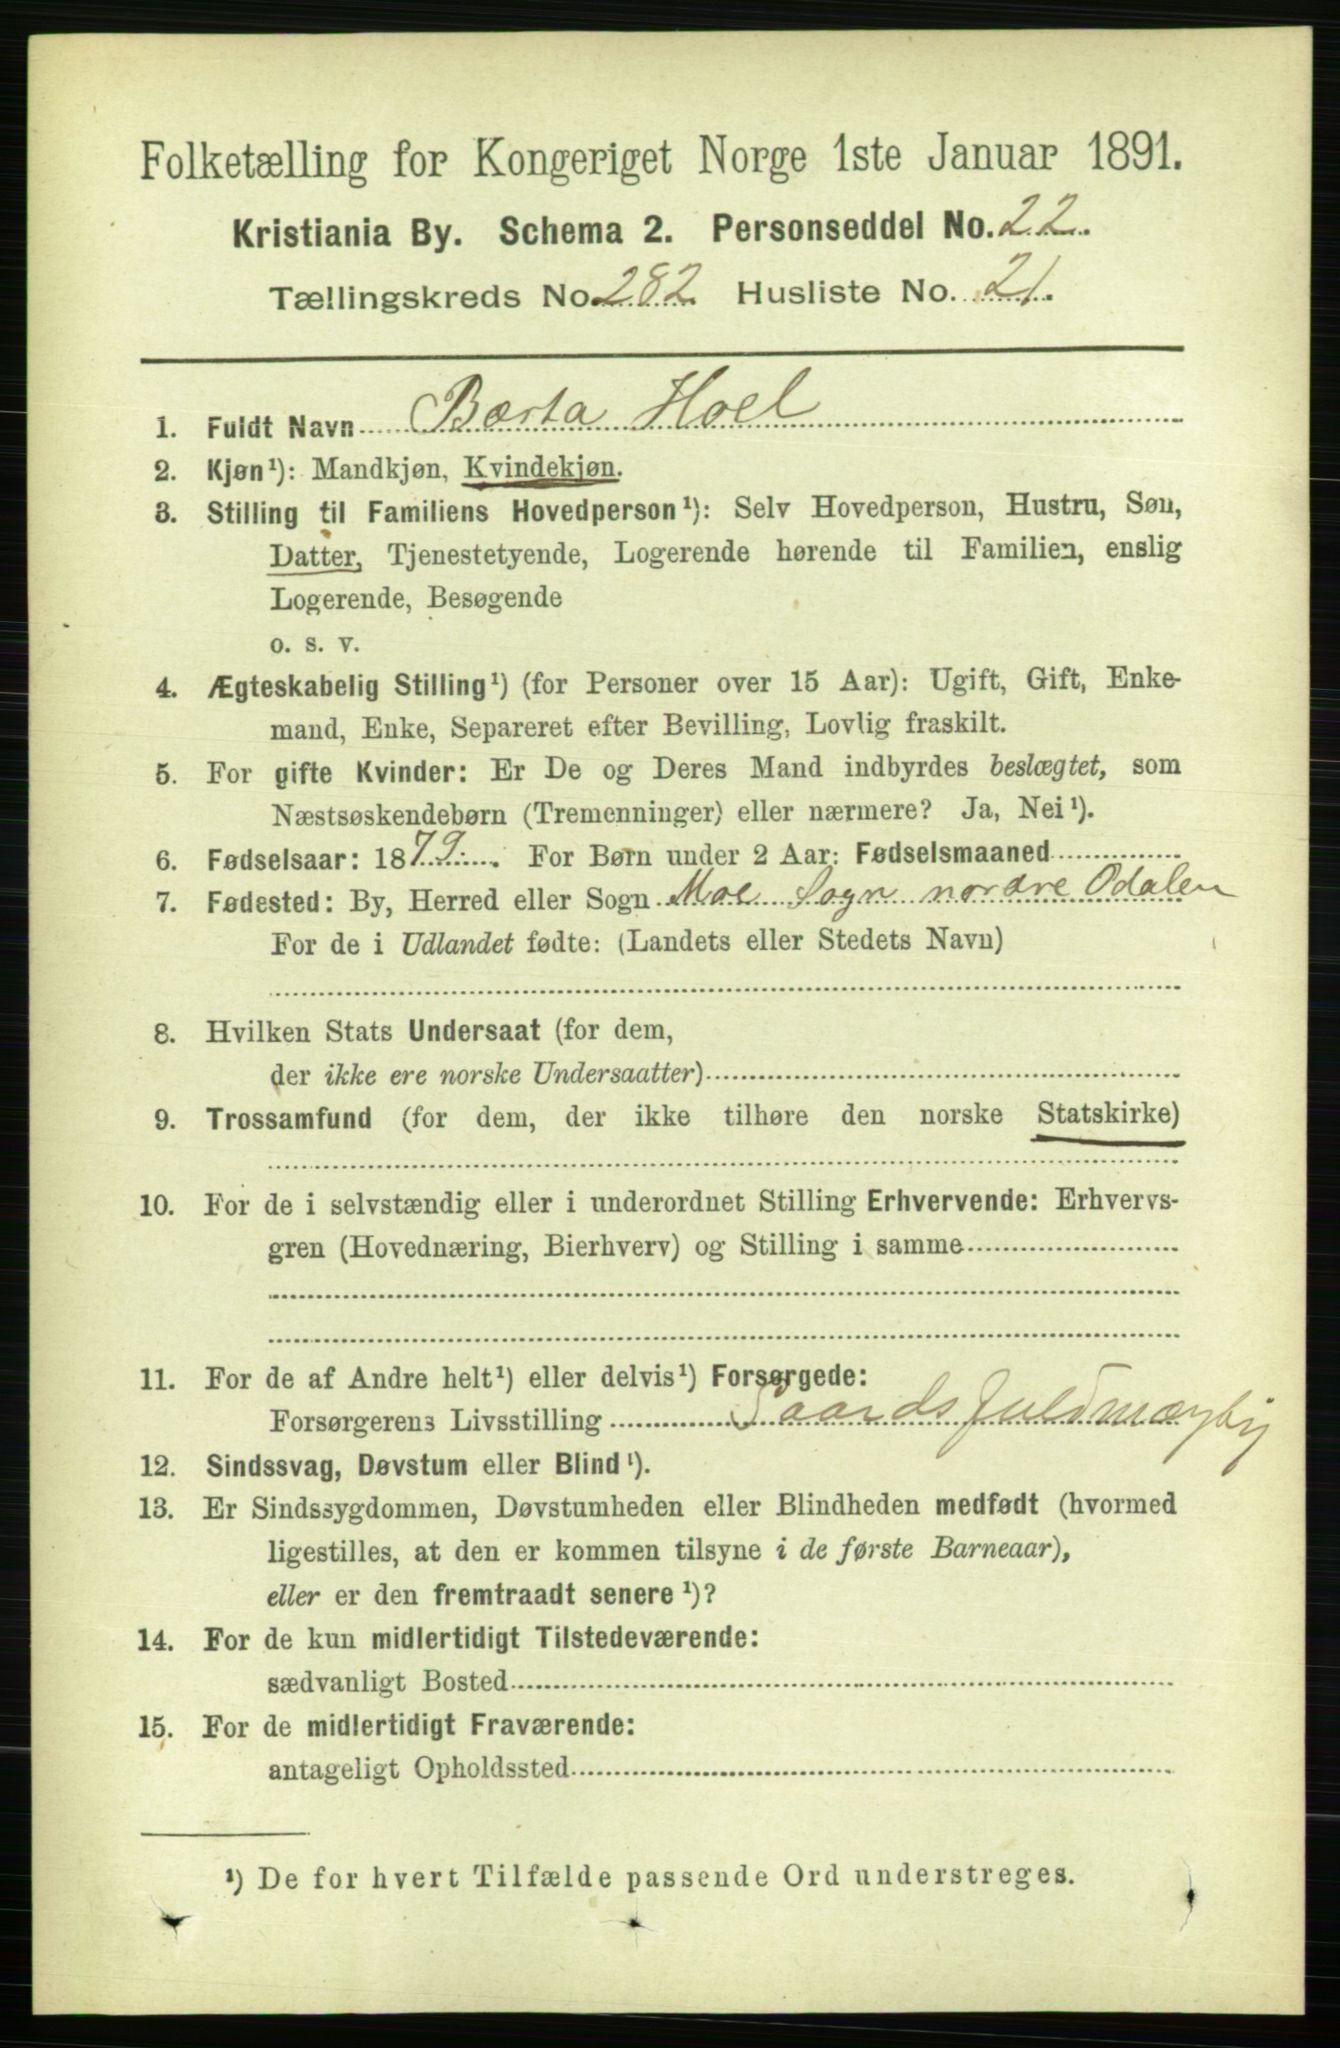 Folketælling for Kongeriget Norge 1ste Januar 1891.
Kristiania By. Schema 2. Personseddel No. 22.
Tællingskreds No. 282. Husliste No. 21.
1. Fuldt Navn Børta Hoel
2. Kjøn¹): Mandkjøn, Kvindekjøn.
3. Stilling til Familiens Hovedperson¹): Selv Hovedperson, Hustru, Søn,
Datter, Tjenestetyende, Logerende hørende til Familien, enslig
Logerende, Besøgende
o. s. v.
4. Ægteskabelig Stilling¹) (for Personer over 15 Aar): Ugift, Gift, Enke-
mand, Enke, Separeret efter Bevilling, Lovlig fraskilt.
5. For gifte Kvinder: Er De og Deres Mand indbyrdes beslægtet, som
Næstsøskendebørn (Tremenninger) eller nærmere? Ja, Nei¹).
6. Fødselsaar: 1879. For Børn under 2 Aar: Fødselsmaaned
7. Fødested: By, Herred eller Sogn Moe Sogn nordre Odalen
For de i Udlandet fødte: (Landets eller Stedets Navn)
8. Hvilken Stats Undersaat (for dem,
der ikke ere norske Undersaatter)
9. Trossamfund (for dem, der ikke tilhøre den norske Statskirke)
10. For de i selvstændig eller i underordnet Stilling Erhvervende: Erhvervs-
gren (Hovednæring, Bierhverv) og Stilling i samme
11. For de af Andre helt¹) eller delvis¹) Forsørgede:
Forsørgerens Livsstilling Gaardsfuldmægtig
12. Sindssvag, Døvstum eller Blind¹).
13. Er Sindssygdommen, Døvstumheden eller Blindheden medfødt (hvormed
ligestilles, at den er kommen tilsyne i de første Barneaar),
eller er den fremtraadt senere¹)?
14. For de kun midlertidigt Tilstedeværende:
sædvanligt Bosted
15. For de midlertidigt Fraværende:
antageligt Opholdssted
¹) De for hvert Tilfælde passende Ord understreges.